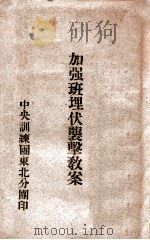 加强班埋伏襲擊教案
中央訓練團東北分團印